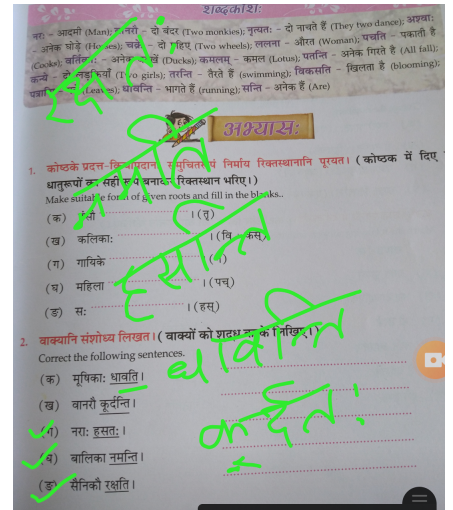 शब्दकोशः
नरः - आदमी (Man); वानरौ - दो बंदर (Two monkeys); नृत्यतः - दो नाचते हैं (They two dance); अश्वाः
- अनेक घोड़े (Horses); चक्रे - दो पहिए (Two wheels); ललना - औरत (Woman); पचति - पकाती है
(Cooks); वर्तिकाः - अनेक (Ducks); कमलम् - कमल (Lotus); पतन्ति - अनेक गिरते हैं (All fall);
कन्ये - दो लड़कियाँ (Two girls); तरन्ति - तैरते हैं (swimming); विकसति - खिलता है (blooming);
(Leaves); धावन्ति - भागते हैं (running); सन्ति - अनेक हैं (Are)
रक्षतः
अभ्यासः
1. कोष्ठके प्रदत्त समुचितरूपं निर्माय रिक्तस्थानानि पूरयत। (कोष्ठक में दिए
धातुरूपों का सही रूप बनाकर रिक्तस्थान भरिए।)
Make suitable form of given roots and fill in the blanks..
नमति
(क) । (तृ)
(ख) कलिकाः । (वि कस्)
(ग) गायिके
(घ) महिला । (पच्)
(ङ) सः । (हस्)
हसन्ति
2. वाक्यानि संशोध्य लिखत। (वाक्यों को शुद्ध करके लिखिए।)
Correct the following sentences.
(क) मूषिकाः धावति।
धावन्ति
(ख) वानरौ कूर्दन्ति।
कूर्दतः
(ग) नराः हसतः।
(घ) बालिका नमन्ति।
(ङ) सैनिकौ रक्षति।